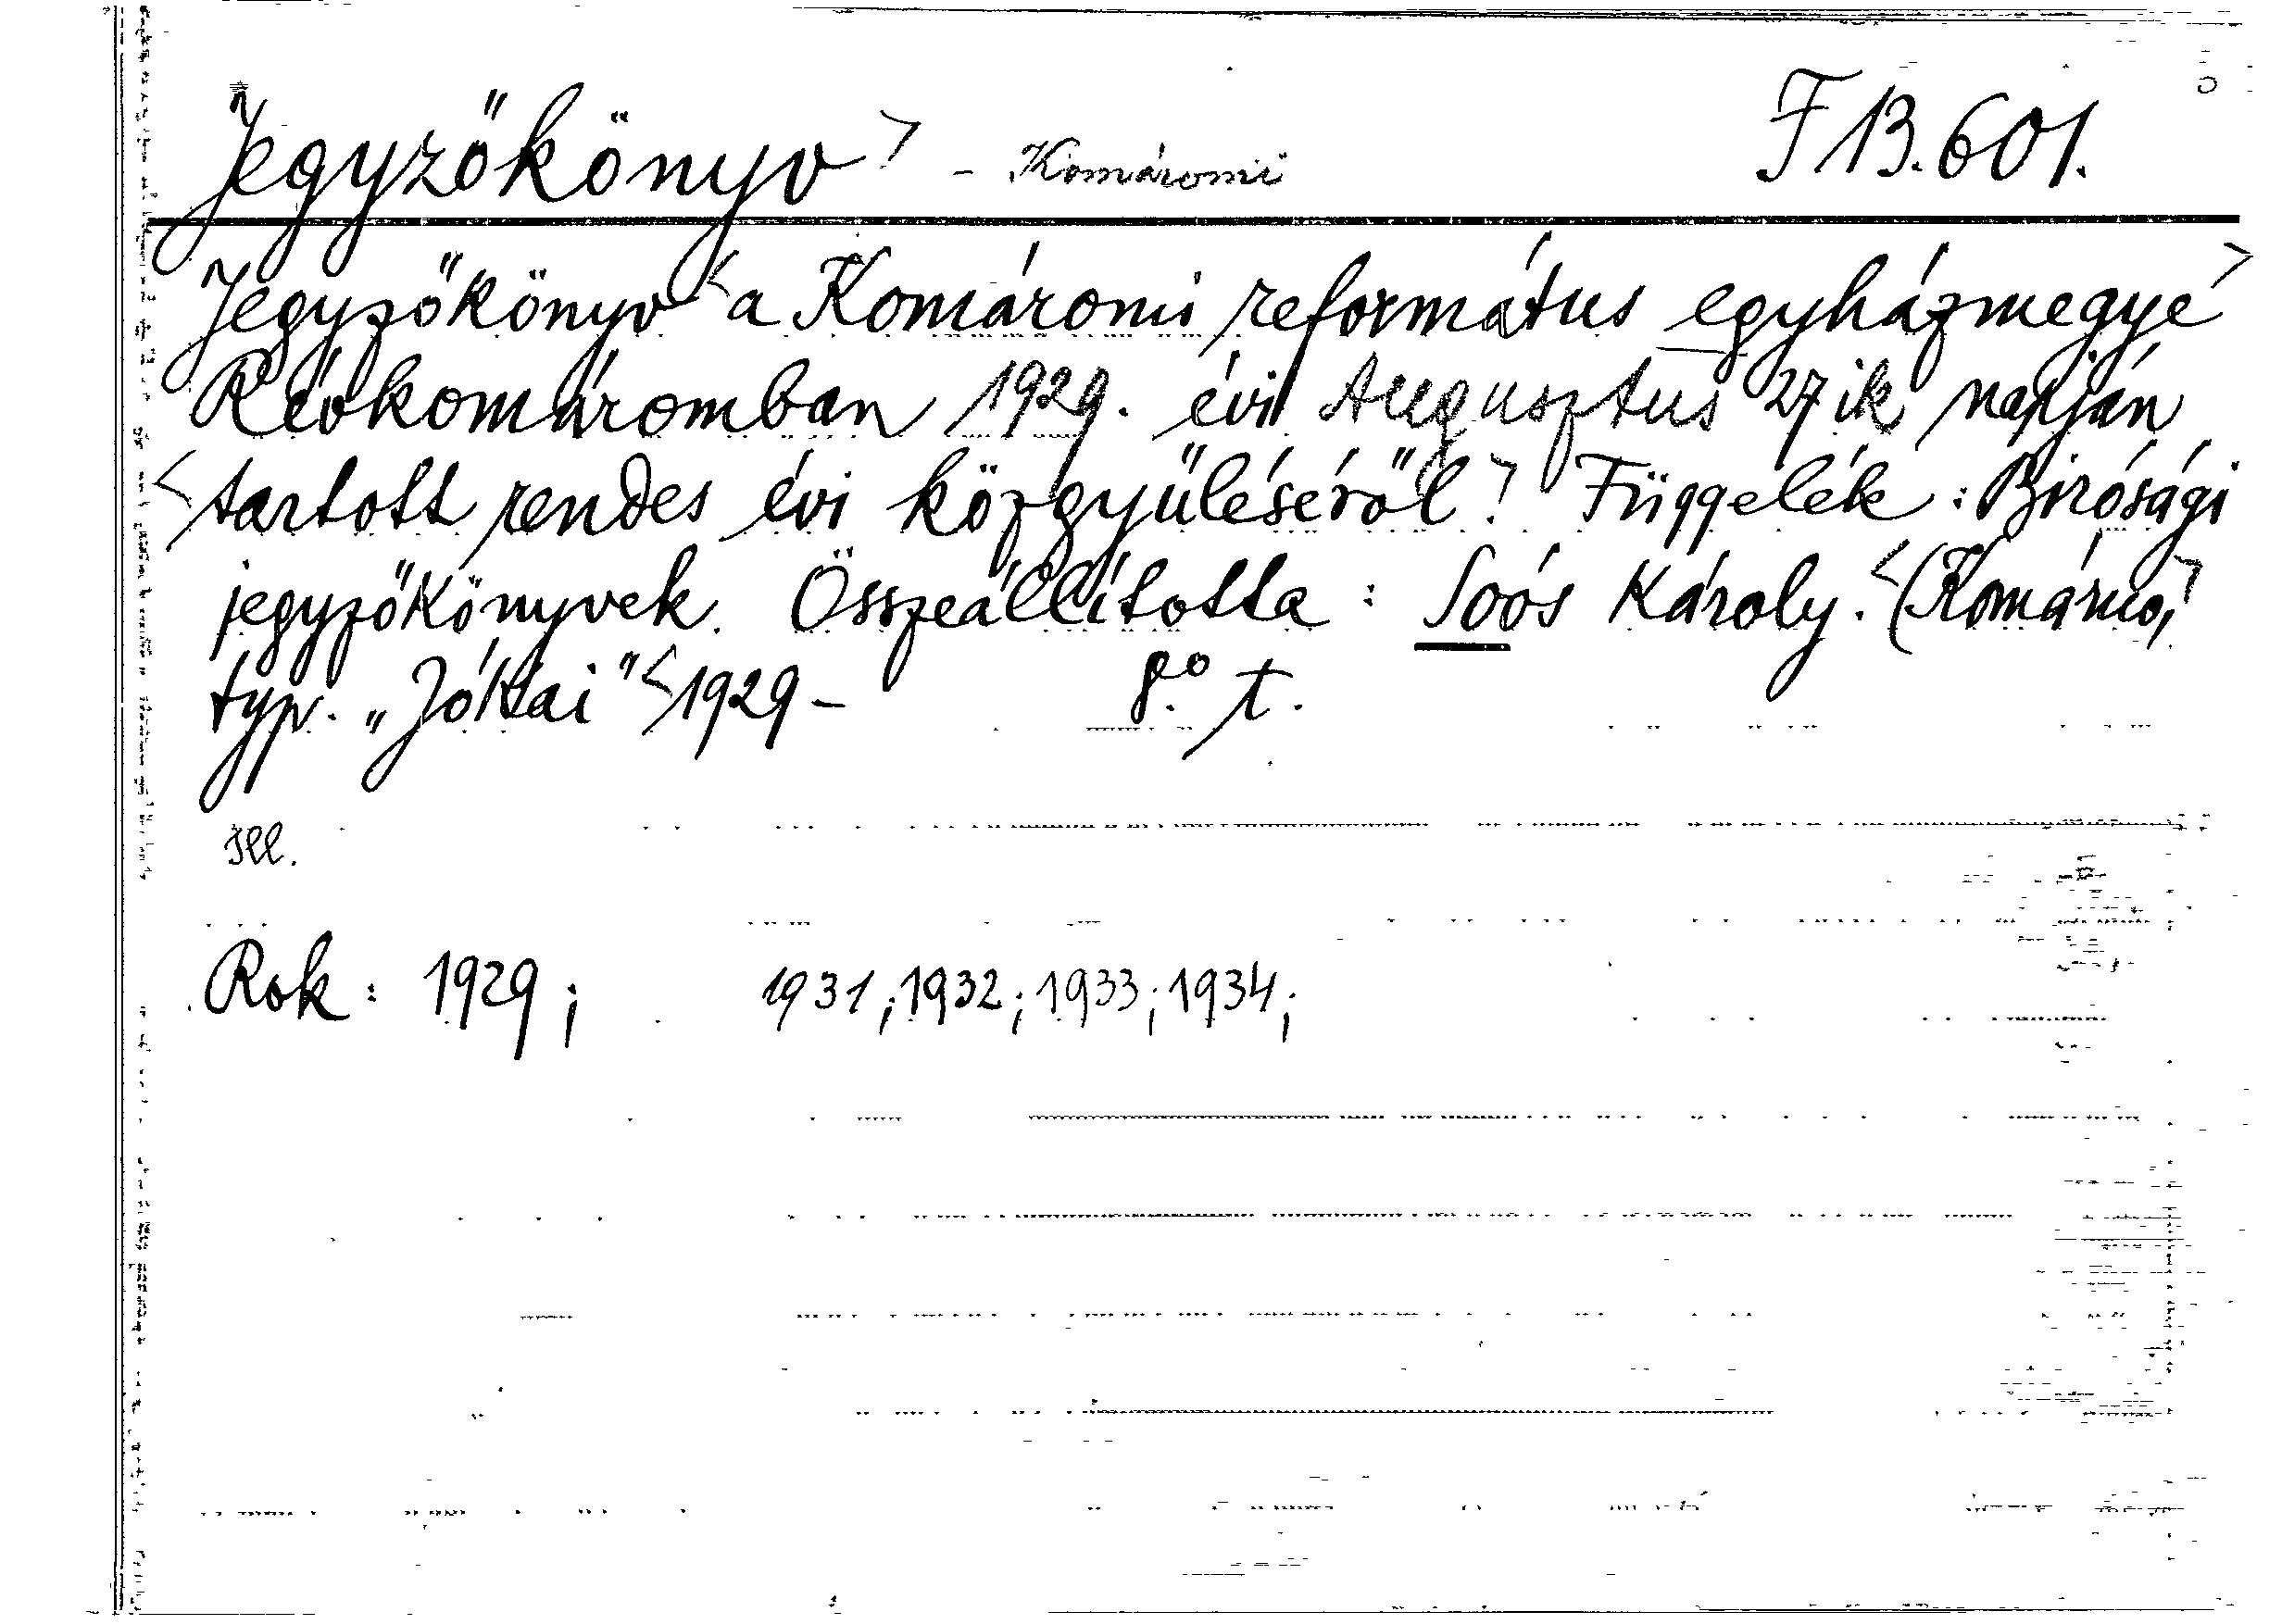 Jegyzőkönyv> - Komáromi F 13.601.
Jegyzőkönyv <a Komáromi református egyházmegye>
Révkomáromban 1929. évi Augusztus 27ik napján
<tartott rendes évi közgyűléséről.> Függelék: Birósági
jegyzőkönyvek. Összeállította: Soós Károly. <(Komárno,>
typ. „Jókai" <1929- 8.° t.
Ill.
Rok: 1929; 1931; 1932; 1933; 1934;